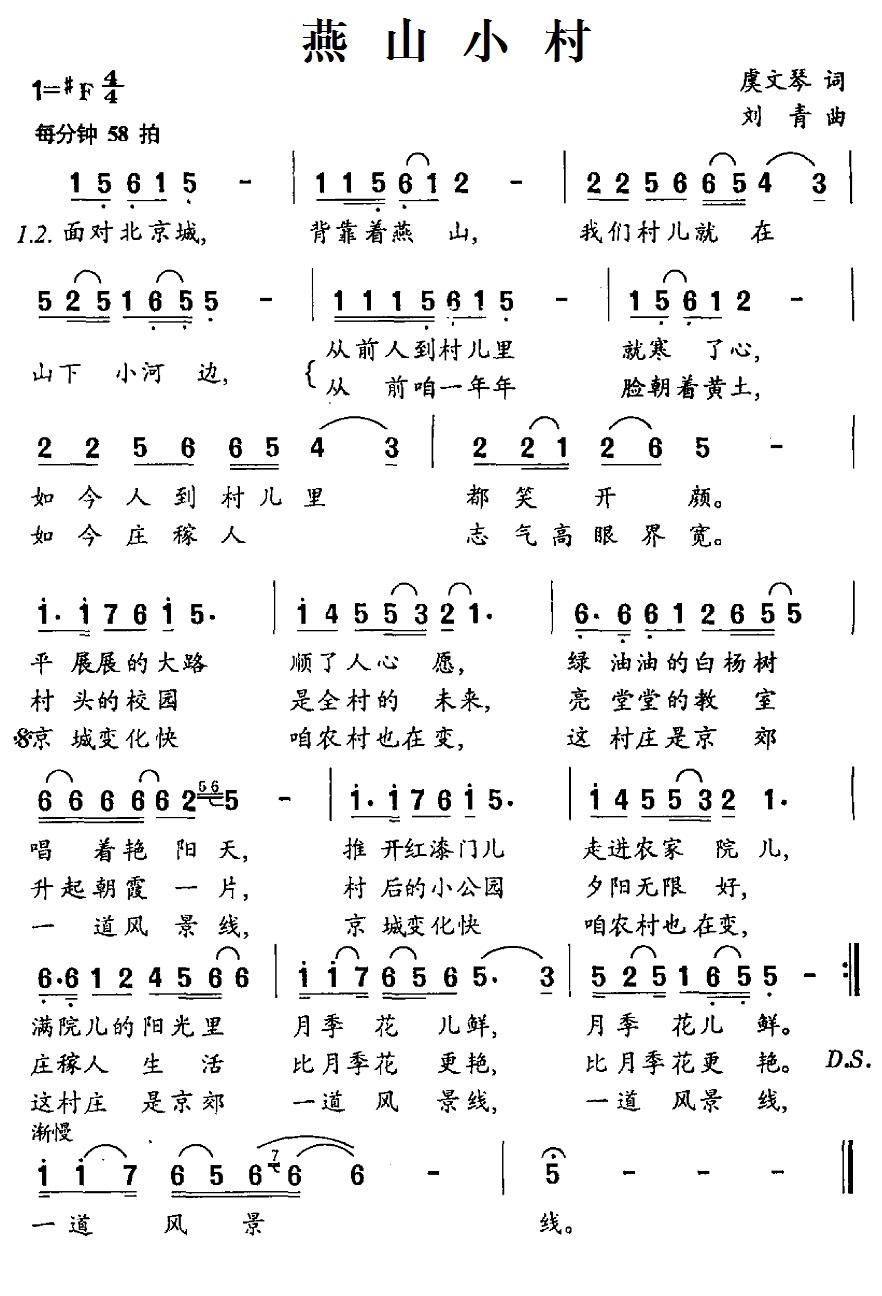 燕山小村
1=♯F 4/4
虞文琴 词
刘青 曲
每分钟 58 拍
1 5 6 1 5 - | 1 1 5 6 1 2 - | 2 2 5 6 6 5 4 3 |
1.2. 面对北京城, 背靠着燕山, 我们村儿就在
5 2 5 1 6 5 5 - | 1 1 1 5 6 1 5 - | 1 5 6 1 2 - |
山下小河边, { 从前人到村儿里 就寒了心,
从前咱一年年 脸朝着黄土,
2 2 5 6 6 5 4 3 | 2 2 1 2 6 5 - |
如今人到村儿里 都笑开颜。
如今庄稼人 志气高眼界宽。
i. i 7 6 i 5. | i 4 5 5 3 2 1. | 6. 6 6 1 2 6 5 5 |
平展展的大路 顺了人心愿, 绿油油的白杨树
村头的校园 是全村的未来, 亮堂堂的教室
𝄋京城变化快 咱农村也在变, 这村庄是京郊
6 6 6 6 6 2 56 5 - | i. i 7 6 i 5. | i 4 5 5 3 2 1. |
唱着艳阳天, 推开红漆门儿 走进农家院儿,
升起朝霞一片, 村后的小公园 夕阳无限好,
一道风景线, 京城变化快 咱农村也在变,
6. 6 1 2 4 5 6 6 | i i 7 6 5 6 5. 3 | 5 2 5 1 6 5 5 - :‖
满院儿的阳光里 月季花儿鲜, 月季花儿鲜。
庄稼人生活 比月季花更艳, 比月季花更艳。 D.S.
这村庄是京郊 一道风景线, 一道风景线,
渐慢
i i 7 6 5 6 7 6 6 - | 5 - - - ‖
一道风景 线。